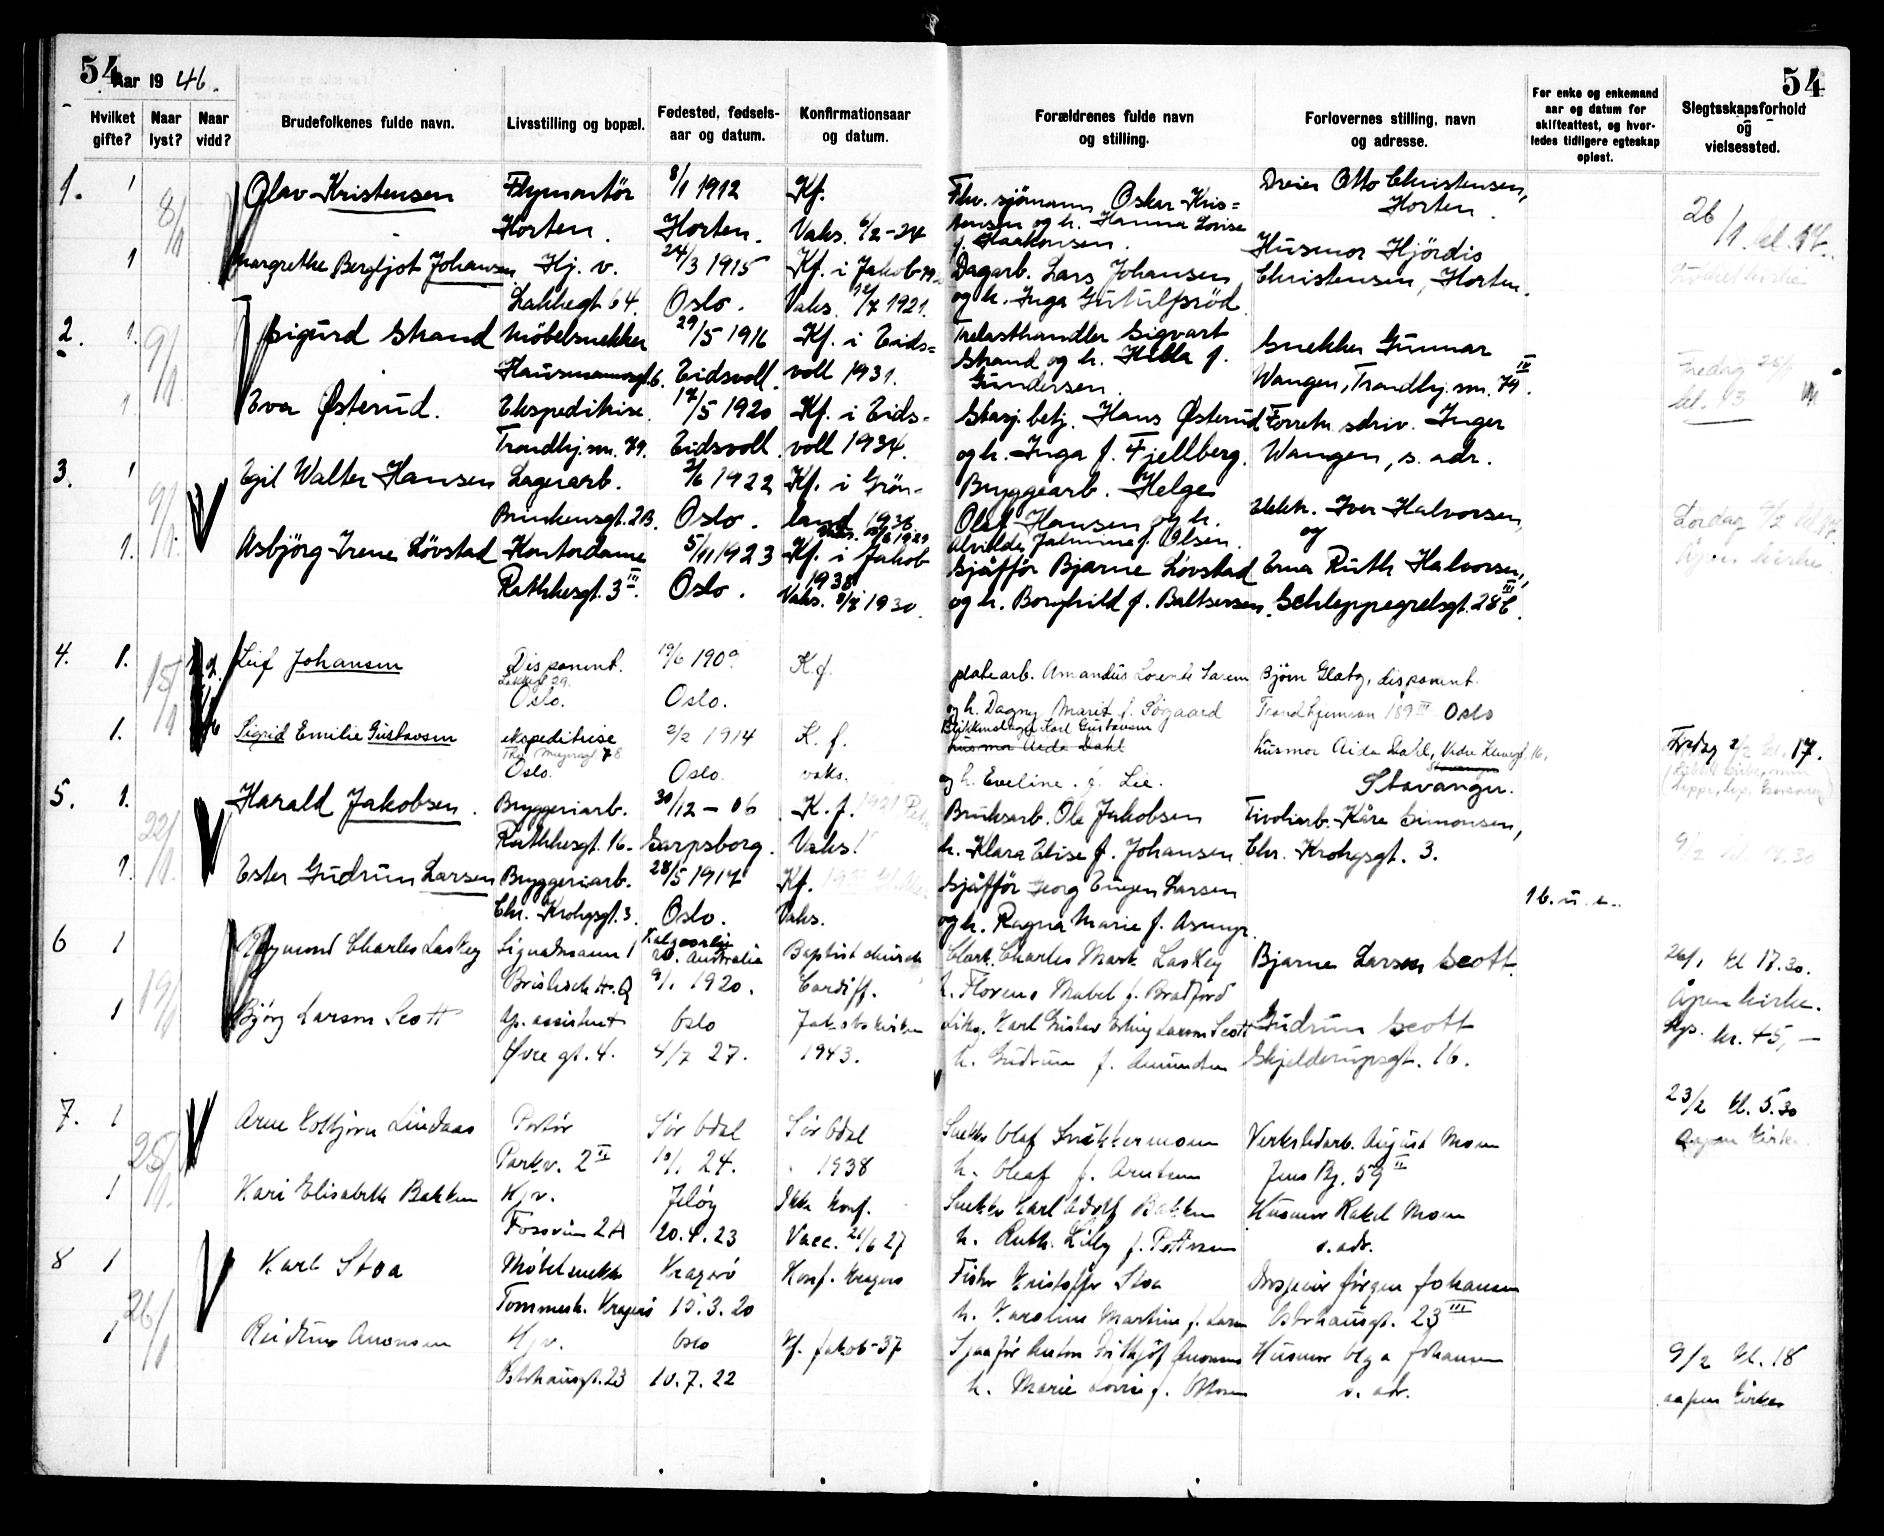 54
Aar 1946.
54
Hvilket gifte?
Naar lyst?
Naar vidd?
Brudefolkenes fulde navn.
Livsstilling og bopæl.
Fødested, fødselsaar og datum.
Konfirmationsaar og datum.
Forældrenes fulde navn og stilling.
Forlovernes stilling, navn og adresse.
For enke og enkemand aar og datum for skifteattest, og hvorledes tidligere egteskap opløst.
Slegtsskapsforhold og vielsessted.
1. 1 8/1 Olav Kristensen Flymontör 8/1 1912 Kf. Fhv. sjömann Oskar Kris= Dreier Otto Christensen, 26/1 kl. 17.
Horten. Horten. Vaks. 6/2-24 tensen og h. Hanna Lovise Horten.
f. Haakonsen.
1 Margrethe Bergljot Johansen Hj. v. 24/3 1915 Kf. i Jakob Dagarb. Lars Johansen Husmor Hjördis
Lakkegt 64. Oslo. Vaks. 1921. og h. Inga Gutulfsröd Christensen, Horten.
2. 1. 9/1 Sigurd Strand Möbelsnekker 29/5 1916 Kf. i Eids= Trelasthandler Sigvart Snekker Gunnar Fredag 25/1
Hausmannsgt. 6. Eidsvoll. voll 1931. Strand og h. Hilla f. Wangen, Trondhj.vn. 79 IV. kl. 13
Gundersen.
1 Eva Østerud. Ekspeditrise. 17/5 1920 Kf. i Eids- Stasj.betj. Hans Østerud Forretn sdriv. Inger
Trondhj.vn. 79. Eidsvoll. voll 1934. og h. Inga f. Fjellberg. Wangen, s. adr.
3. 1 9/1 Egil Walter Hansen Lagerarb. 1922 Kf. i Grön- Bryggearb. Helge Elektr. Iver Halvorsen, Lördag 9/2
Brinkensgt. 2B. Oslo. land 1938 Olaf Hansen og h. og Åpen kirke.
Alvilde Jalmine f. Olsen.
1. Asbjörg Irene Lövstad Kontordame 5/11 1923 Kf. i Jakob Sjåfför Bjarne Lövstad Erna Ruth Halvorsen,
Rathkesgt. 3 III. Oslo. 1938 Vaks. 1930. og h. Borghild f. Baltsersen. Schleppegrelsgt. 28 III.
4. 1. 15/1 Leif Johansen Disponent. 19/6 1909 K.f. platearb. Amandus Bjørn Glatz, disponent.
Oslo. Oslo. og h. Dagny Marit f. Søgaard Trondhjemsvn 189 III Oslo
1. Sigrid Emilie Gustavsen ekspeditrise 2/2 1914 K. f. Blikkenslager Karl Gustavsen husmor Aida Dahl, Fredag 2/2 kl. 17.
husmor Aida Dahl
Oslo. Oslo. vaks. og h. Eveline f. Lie. Stavanger.
5. 1. 22/1 Harald Jakobsen. Bryggeriarb. 30/12-06 K. f. Bruksarb. Ole Jakobsen Tivoliarb. Kåre Simonsen,
Rathkesgt. 16. Sarpsborg. Vaks. h. Klara Elise f. Johansen Chr. Krohgsgt. 3. 9/2 kl. 14.30
1. Ester Gudrun Larsen Bryggeriarb. 28/5 1917 Kf. Sjåfför Georg Eugen Larsen
Chr. Krohgsgt. 3. Oslo. Vaks. og h. Ragna Marie f. 16. u. e.
6 1 19/1 Raymond Charles Laskey Signalmann Kalgoorlie W. Australia Baptist church Clerk. Charles Mark Laskey Bjarne Larsen Scott. 26/1 kl 17.30.
British H.Q 9/1 1920. Cardiff. h. Florens Mabel f. Bradford Åpen kirke.
1 Bjørg Larsen Scott Ap. assistent Oslo Jakobskirken Karl Gustav Erling Larsen Scott Gudrun Scott kr. 45,-
Øvre gt. 4. 4/7 27. 1943. h. Gudrun f. Amundsen Skjelderupsgt. 16.
7. 1 25/1 Arne Kolbjørn Lindaas Portör Sör Odal Sör Odal Snekker Olaf Verkstedarb. August Moen 23/2 kl. 5.30
Parkv. 2 II 10/1 24. 1938 h. Oleaf f. Arntsen Jens Bj. 59 II Aapen kirke.
1 Kari Elisabeth Bakken Hj v. Jeløy Ikke konf. Snekker Karl Adolf Bakken Husmor Rakel Moen
Fossvein 2A 20.9.23 Vacc. 21/6 27 h. Ruth Lilly f. Pettersen s. adr.
8 1 26/1 Karl Stoa Möbelsnekk Kragerö Konf. Kragerö Fisker Kristoffer Stoa Inspektör Jörgen Johansen
Tommesk. Kragerö 15.3.20 h. Karoline Martine f. Larsen Osterhausgt. 23 III
1 Reidun Aronsen Hj v. Oslo Kf. Jakob-37 Sjaafför Anton Fridtjöf Aronsen Husmor Olga Johansen 9/2 kl. 18
Osterhausgt. 23 10.7.22 h. Marie Lovise f. Ottosen s. adr. aapen kirke